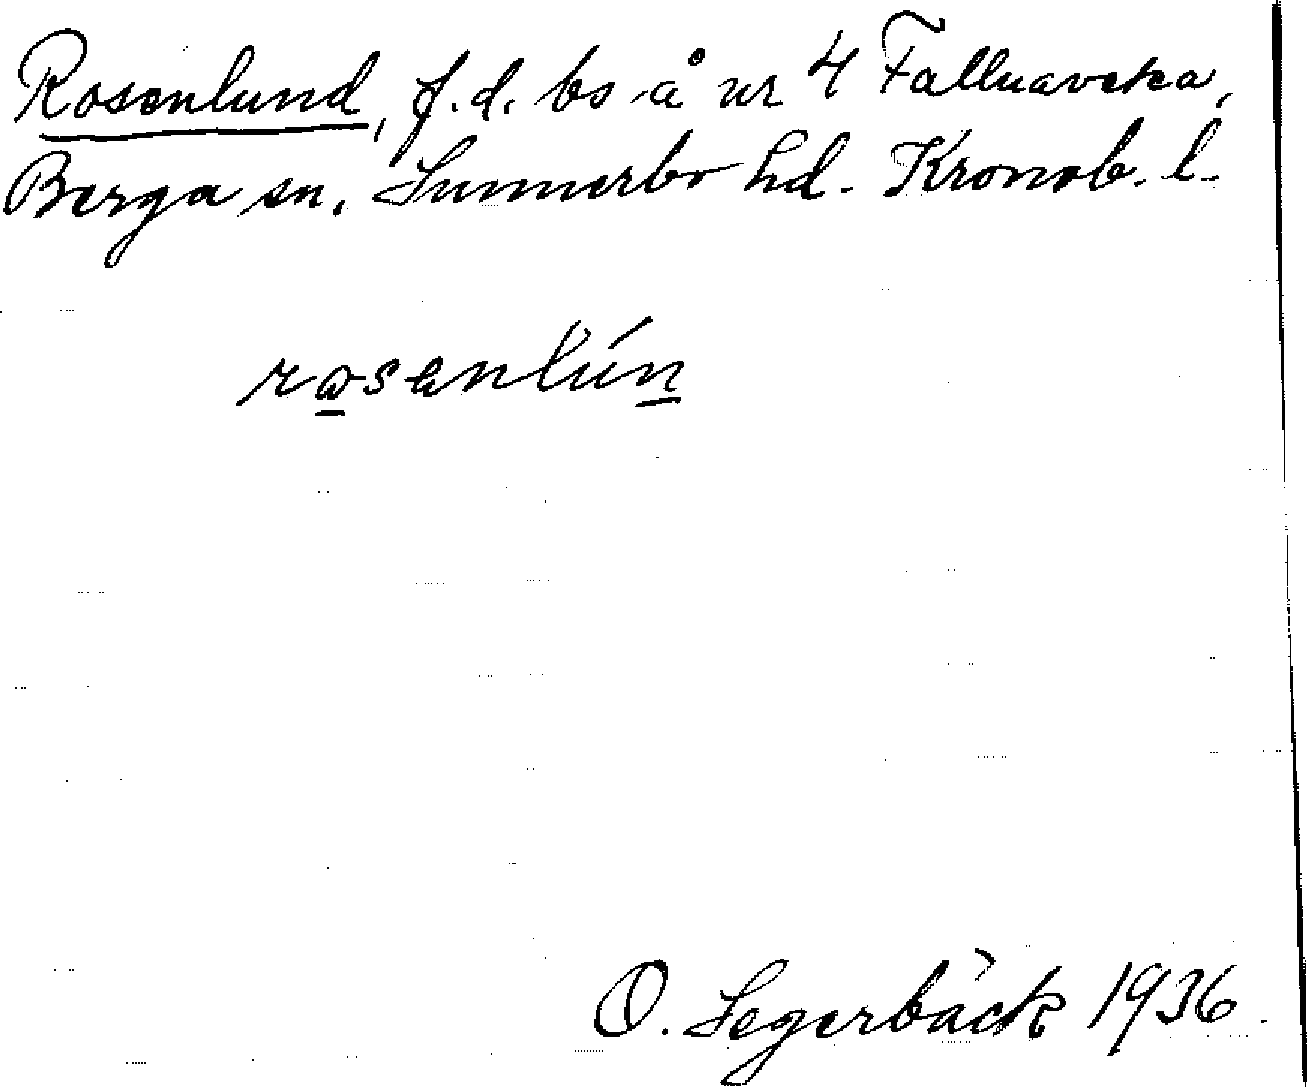 Rosenlund, f.d. bs å nr 4 Fallnaveka,
Berga sn. Sunnerbo hd. Kronob. l.
rosenlún
O. Segerbäck 1936.